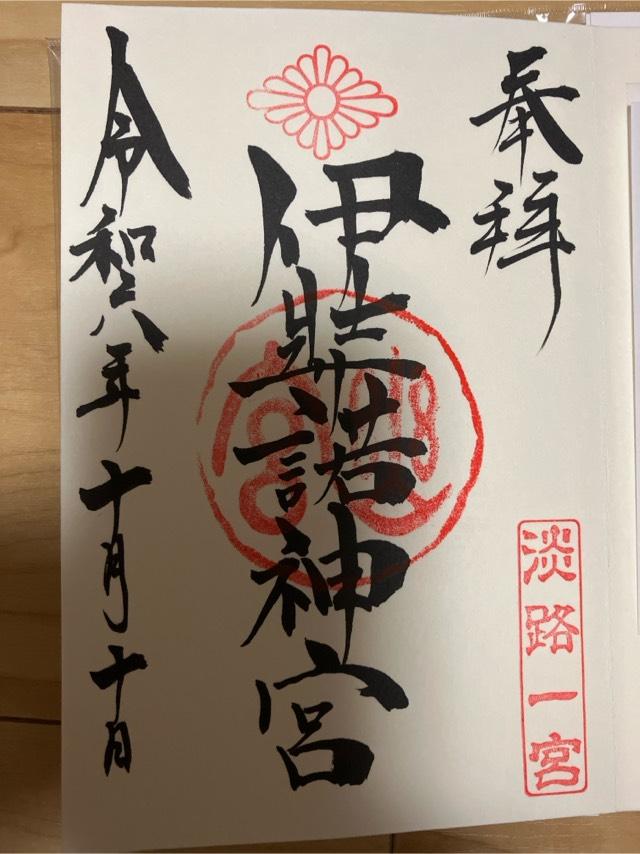 奉拝
伊弉諾神宮
淡路一宮
令和六年十月十日